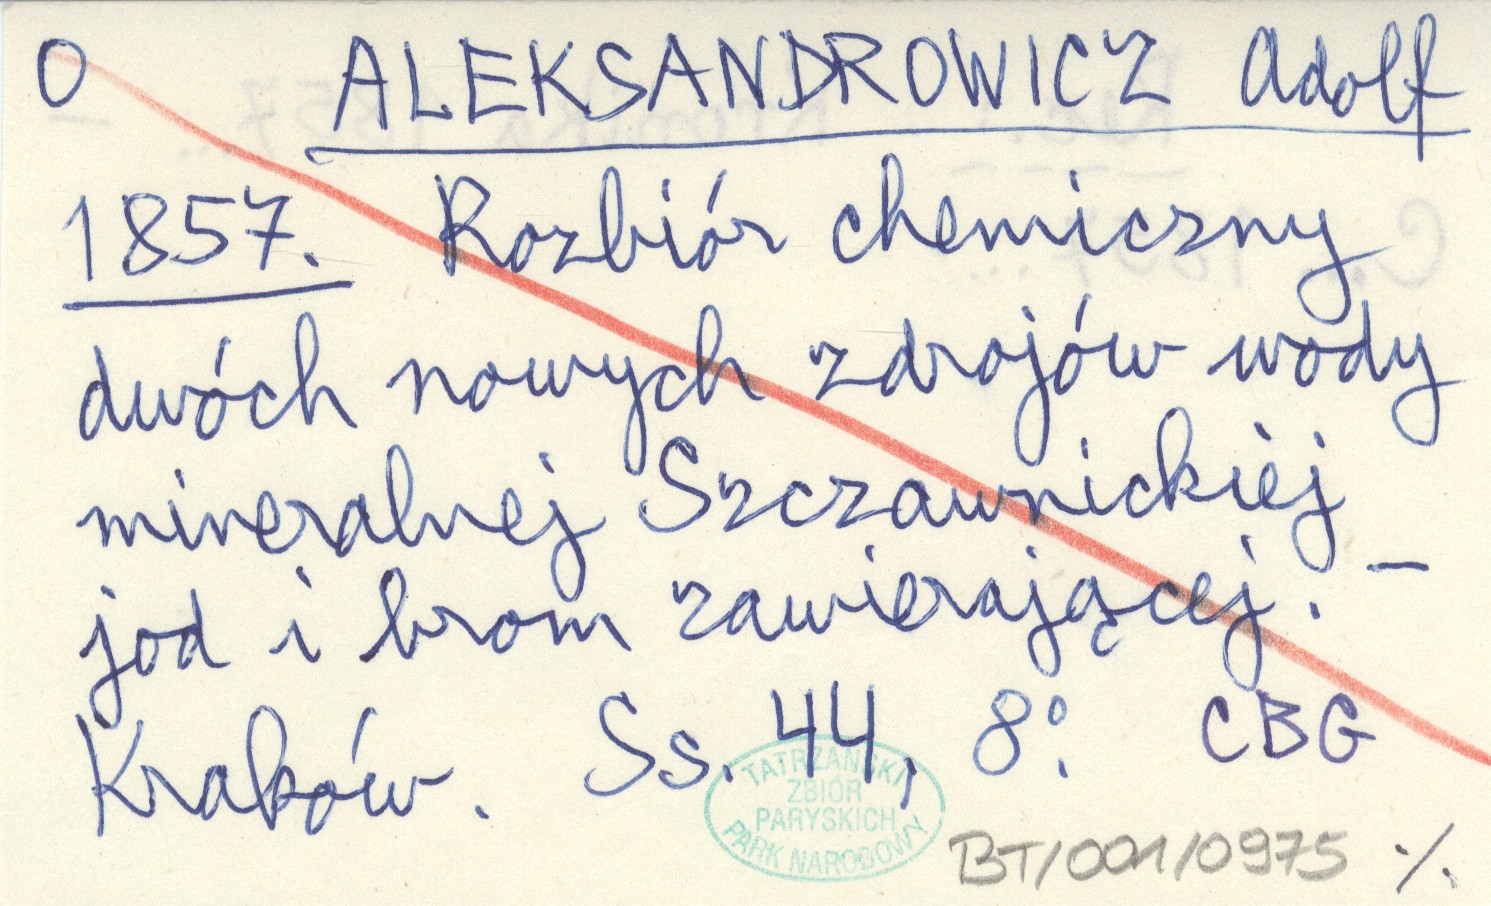 O ALEKSANDROWICZ Adolf
1857. Rozbiór chemiczny
dwóch nowych zdrojów wody
mineralnej Szczawnickiej
jod i brom zawierającej. —
Kraków. Ss. 44, 8°. CBG
TATRZAŃSKI
ZBIÓR
PARYSKICH
PARK NARODOWY
BT/001/0975 ·/.